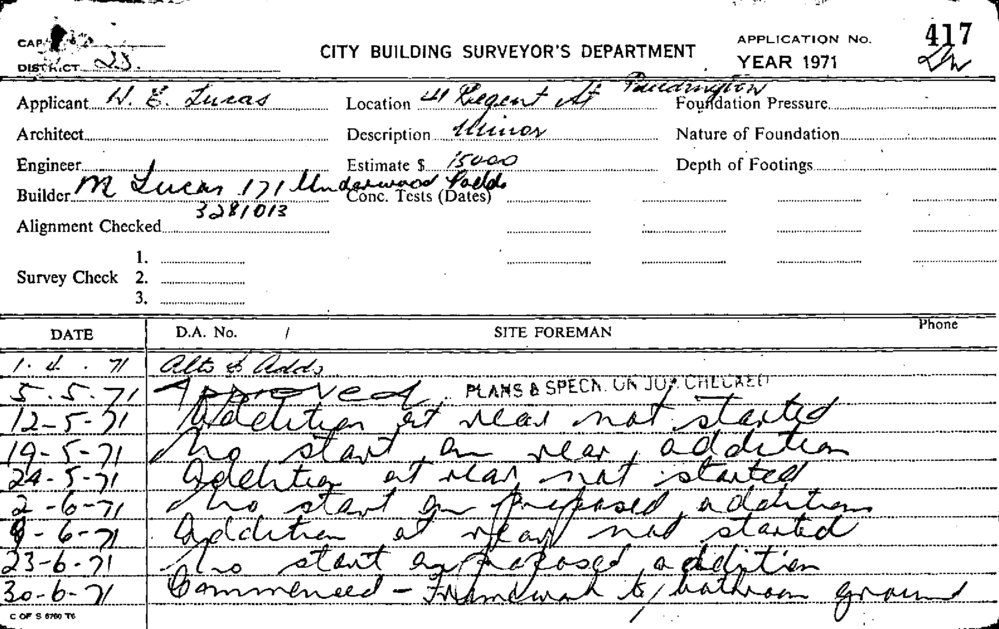 CITY BUILDING SURVEYOR'S DEPARTMENT
APPLICATION No. 417
YEAR 1971
DISTRICT 23.
Applicant W. E. Lucas Location 41 Regent St Paddington Foundation Pressure
Architect Description Minor Nature of Foundation
Engineer Estimate $ 15000 Depth of Footings
Builder M Lucas 171 Underwood Padd Conc. Tests (Dates)
3281013
Alignment Checked
1.
Survey Check 2.
3.
DATE D.A. No. / SITE FOREMAN Phone
1. 4. 71 Alts & Adds
5. 5. 71 Approved PLANS & SPECN. ON JOB CHECKED
12-5-71 Addition at rear not started
19-5-71 No start on rear addition
24-5-71 Addition at rear not started
2-6-71 No start on proposed addition
9-6-71 Addition at rear not started
23-6-71 No start on proposed addition
30-6-71 Commenced - Framework to bathroom ground
C OF S 6760 T6